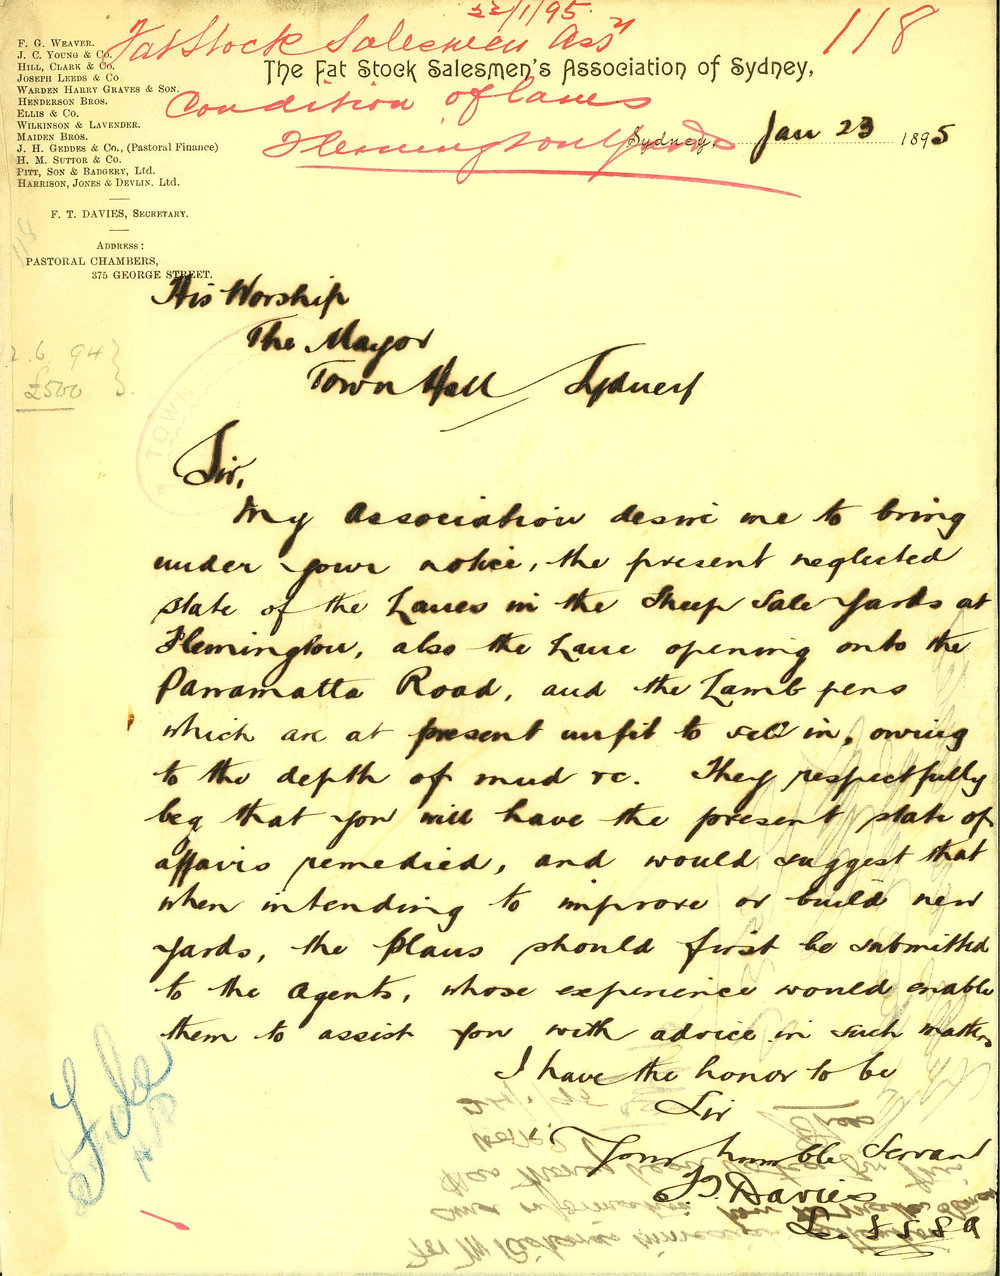 22/1/95.
118
Fat Stock Salesmen Assn
Condition of Lanes
Flemington Yards
The Fat Stock Salesmen's Association of Sydney,
F. G. Weaver.
J. C. Young & Co.
Hill, Clark & Co.
Joseph Leeds & Co
Warden Harry Graves & Son.
Henderson Bros.
Ellis & Co.
Wilkinson & Lavender.
Maiden Bros.
J. H. Geddes & Co., (Pastoral Finance)
H. M. Suttor & Co.
Pitt, Son & Badgery, Ltd.
Harrison, Jones & Devlin, Ltd.
F. T. DAVIES, Secretary.
Address:
PASTORAL CHAMBERS,
375 GEORGE STREET.
Sydney, Jan 23 1895
118
2.6.94
£500
His Worship
The Mayor
Town Hall Sydney
TOWN
Sir,
My Association desire me to bring
under your notice, the present neglected
state of the Lanes in the Sheep Sale Yards at
Flemington, also the Lane opening onto the
Parramatta Road, and the Lamb pens
which are at present unfit to sell in, owing
to the depth of mud &c. They respectfully
beg that you will have the present state of
affairs remedied, and would suggest that
when intending to improve or build new
yards, the Plans should first be submitted
to the Agents, whose experience would enable
them to assist you with advice in such matters
I have the honor to be
Sir
Your humble Servant
F. T. Davies
File